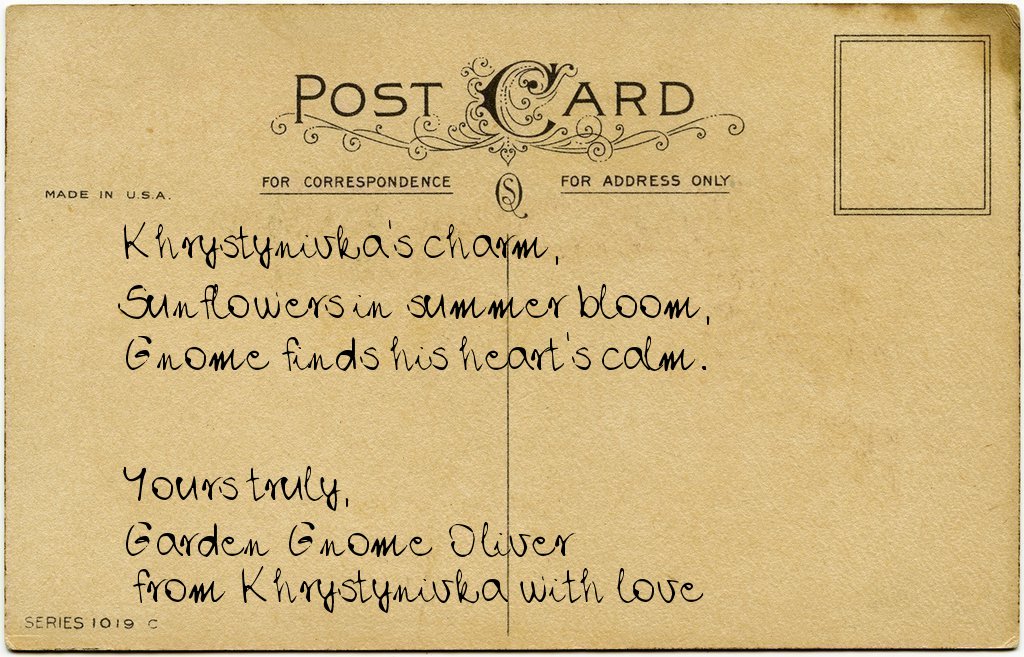 POST CARD
FOR CORRESPONDENCE
FOR ADDRESS ONLY
MADE IN U.S.A.
Khrystynivka's charm,
Sunflowers in summer bloom,
Gnome finds his heart's calm.
Yours truly,
Garden Gnome Oliver
from Khrystynivka with love
SERIES 1019 C